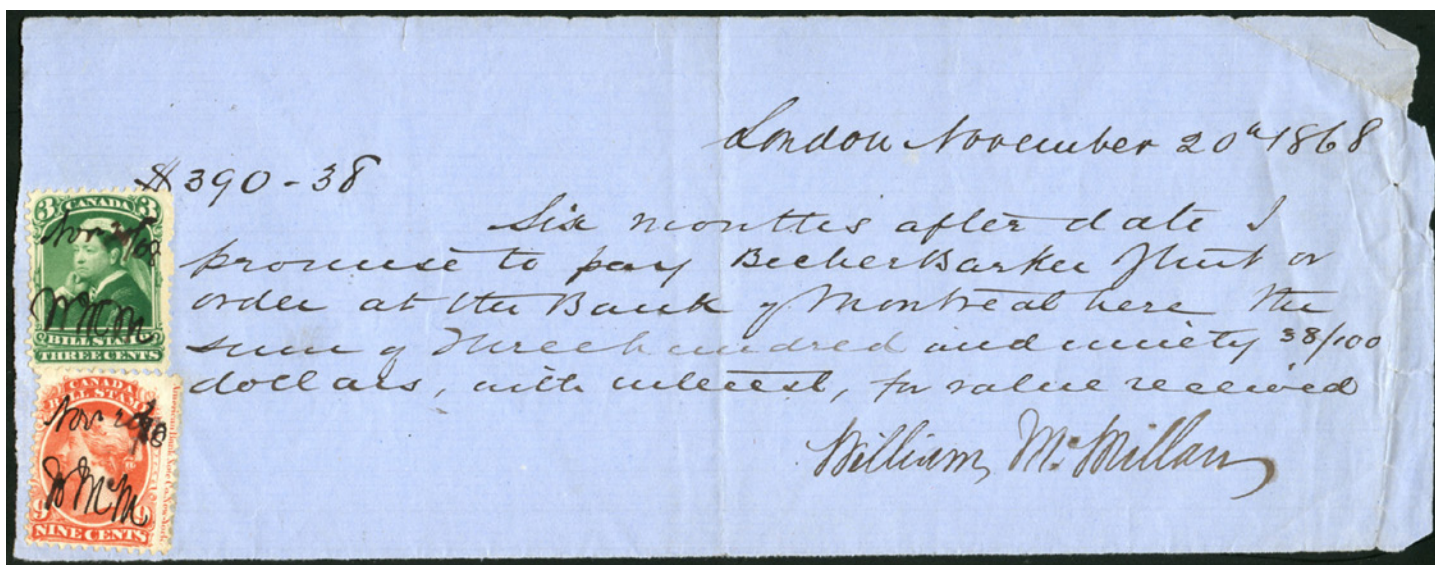 London November 20th 1868
$390-38
Six months after date I
promise to pay Becher Barker Street or
order at the Bank of Montreal here the
sum of Three hundred and ninety 38/100
dollars, with interest, for value received
William McMillan
3 CANADA 3
Nov 20/68
W McM
BILL STAMP
THREE CENTS
CANADA
BILL STAMP
Nov 20/68
W McM
9 9
NINE CENTS
American Bank Note Co. New York.